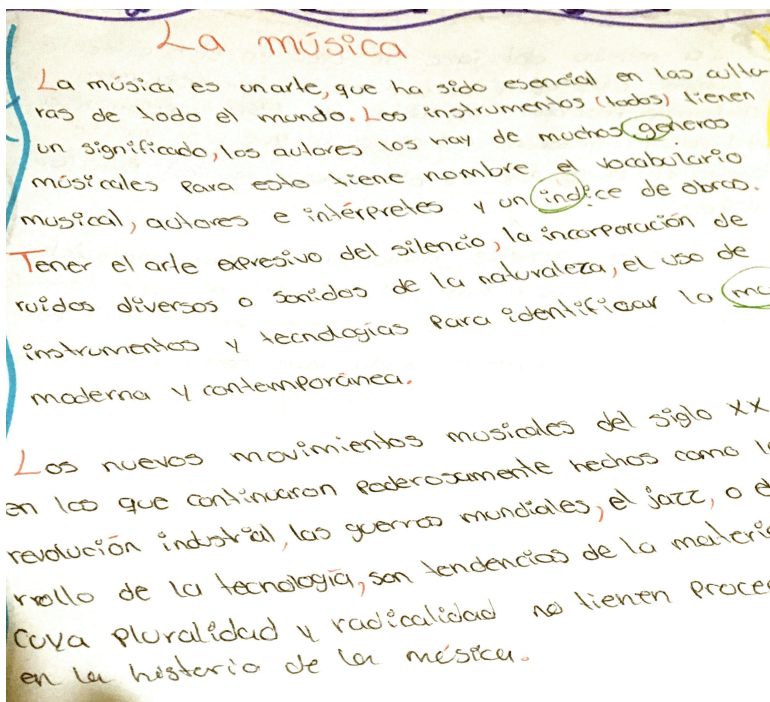 La música
La música es un arte, que ha sido esencial en las cultu-
ras de todo el mundo. Los instrumentos (todos) tienen
un significado, los autores los hay de muchos generos
músicales Para esto tiene nombre el vocabulario
musical, autores e intérpretes y un índice de obras.
Tener el arte expresivo del silencio, la incorporación de
ruidos diversos o sonidos de la naturaleza, el uso de
instrumentos y tecnologías Para identificar la mú
moderna y contemporánea.
Los nuevos movimientos musicales del siglo XX
en los que continuaron Poderosamente hechos como l
revolución industrial, las guerras mundiales, el jazz, o e
rrollo de la tecnología, son tendencias de la materi
cuya Pluralidad y radicalidad no tienen Proce
en la historia de la mésica.